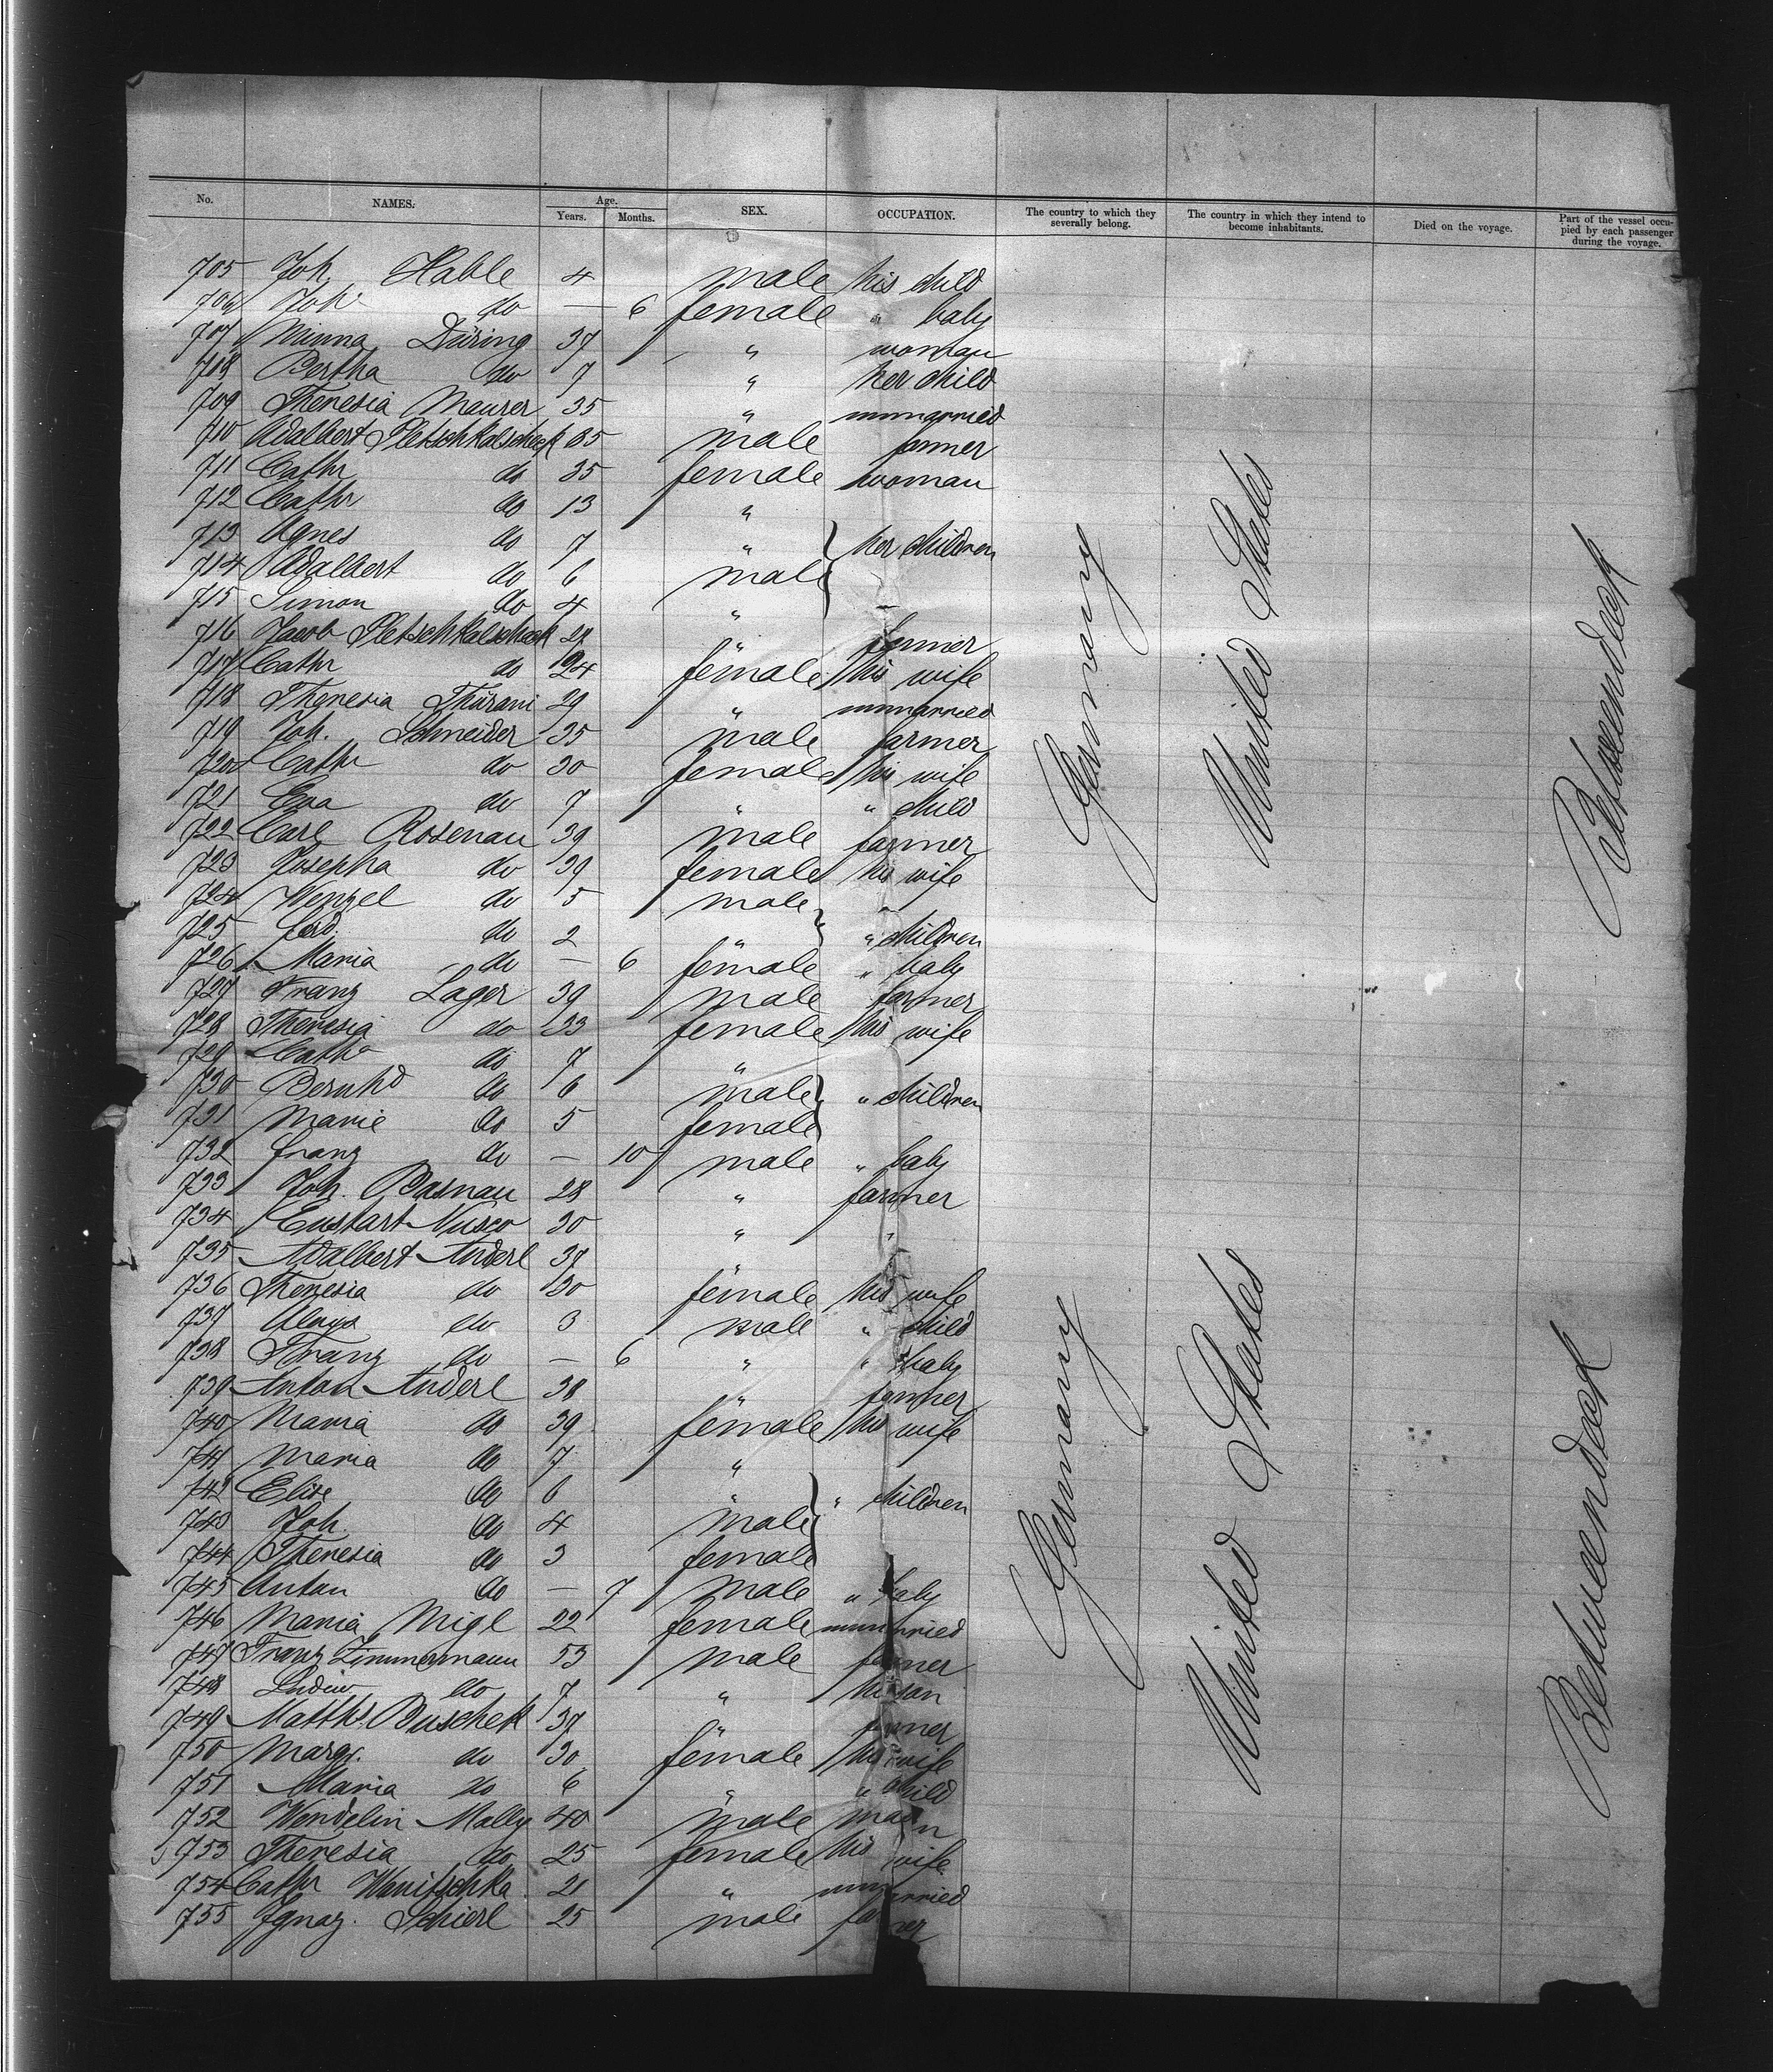 No. NAMES. Age. Years. Months. SEX. OCCUPATION. The country to which they severally belong. The country in which they intend to become inhabitants. Died on the voyage. Part of the vessel occupied by each passenger during the voyage.
705 Joh. Hable 4 male his child
706 Joh. do — 6 female " baby
707 Minna Düring 37 " woman
708 Bertha do 7 " her child
709 Theresia Maurer 35 " unmarried
710 Adalbert Pletschkatscheck 35 male farmer
711 Cathr do 35 female woman
712 Cathr do 13 "
713 Agnes do 7 " her children
714 Adalbert do 6 male
715 Simon do 4 "
716 Jacob Pletschkatscheck 28 " farmer
717 Cathr do 24 female his wife
718 Theresia Thürani 29 " unmarried
719 Joh. Schneider 35 male farmer
720 Cathr do 30 female his wife
721 Eva do 7 " " child
722 Carl Rosenau 39 male farmer
723 Josepha do 39 female his wife
724 Wenzel do 5 male
725 Ferd. do 2 " " children
726 Maria do — 6 female " baby
727 Franz Lager 39 male farmer
728 Theresia do 33 female his wife
729 Cathr do 7 "
730 Bernhd do 6 male " children
731 Marie do 5 female
732 Franz do — 10 male " baby
733 Joh. Basnau 28 " farmer
734 Eustart Nusco 30 " "
735 Adalbert Anderl 37
736 Theresia do 30 female his wife
737 Aloys do 3 male " child
738 Franz do — 6 " " baby
739 Anton Anderl 38 " farmer
740 Maria do 39 female his wife
741 Maria do 7 "
742 Elise do 6 " " children
743 Joh do 4 male
744 Theresia do 3 female
745 Anton do — 7 male " baby
746 Maria Migl 22 female unmarried
747 Franz Zimmermann 53 male farmer
748 Ludiw do 7 " his son
749 Matths. Buschek 37 " farmer
750 Margr. do 30 female his wife
751 Maria do 6 " " child
752 Wendelin Mally 40 male man
753 Theresia do 25 female his wife
754 Cathr Wanitschka 21 " unmarried
755 Ignaz. Schierl 25 male farmer
Germany
United States
Betweendeck
Germany
United States
Betweendeck